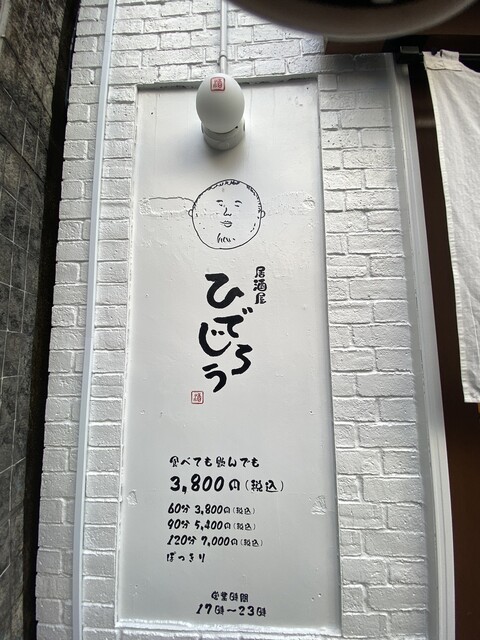 居酒屋
ひでじろう
食べても飲んでも
3,800円(税込)
60分 3,800円(税込)
90分 5,400円(税込)
120分 7,000円(税込)
ぽっきり
営業時間
17時〜23時